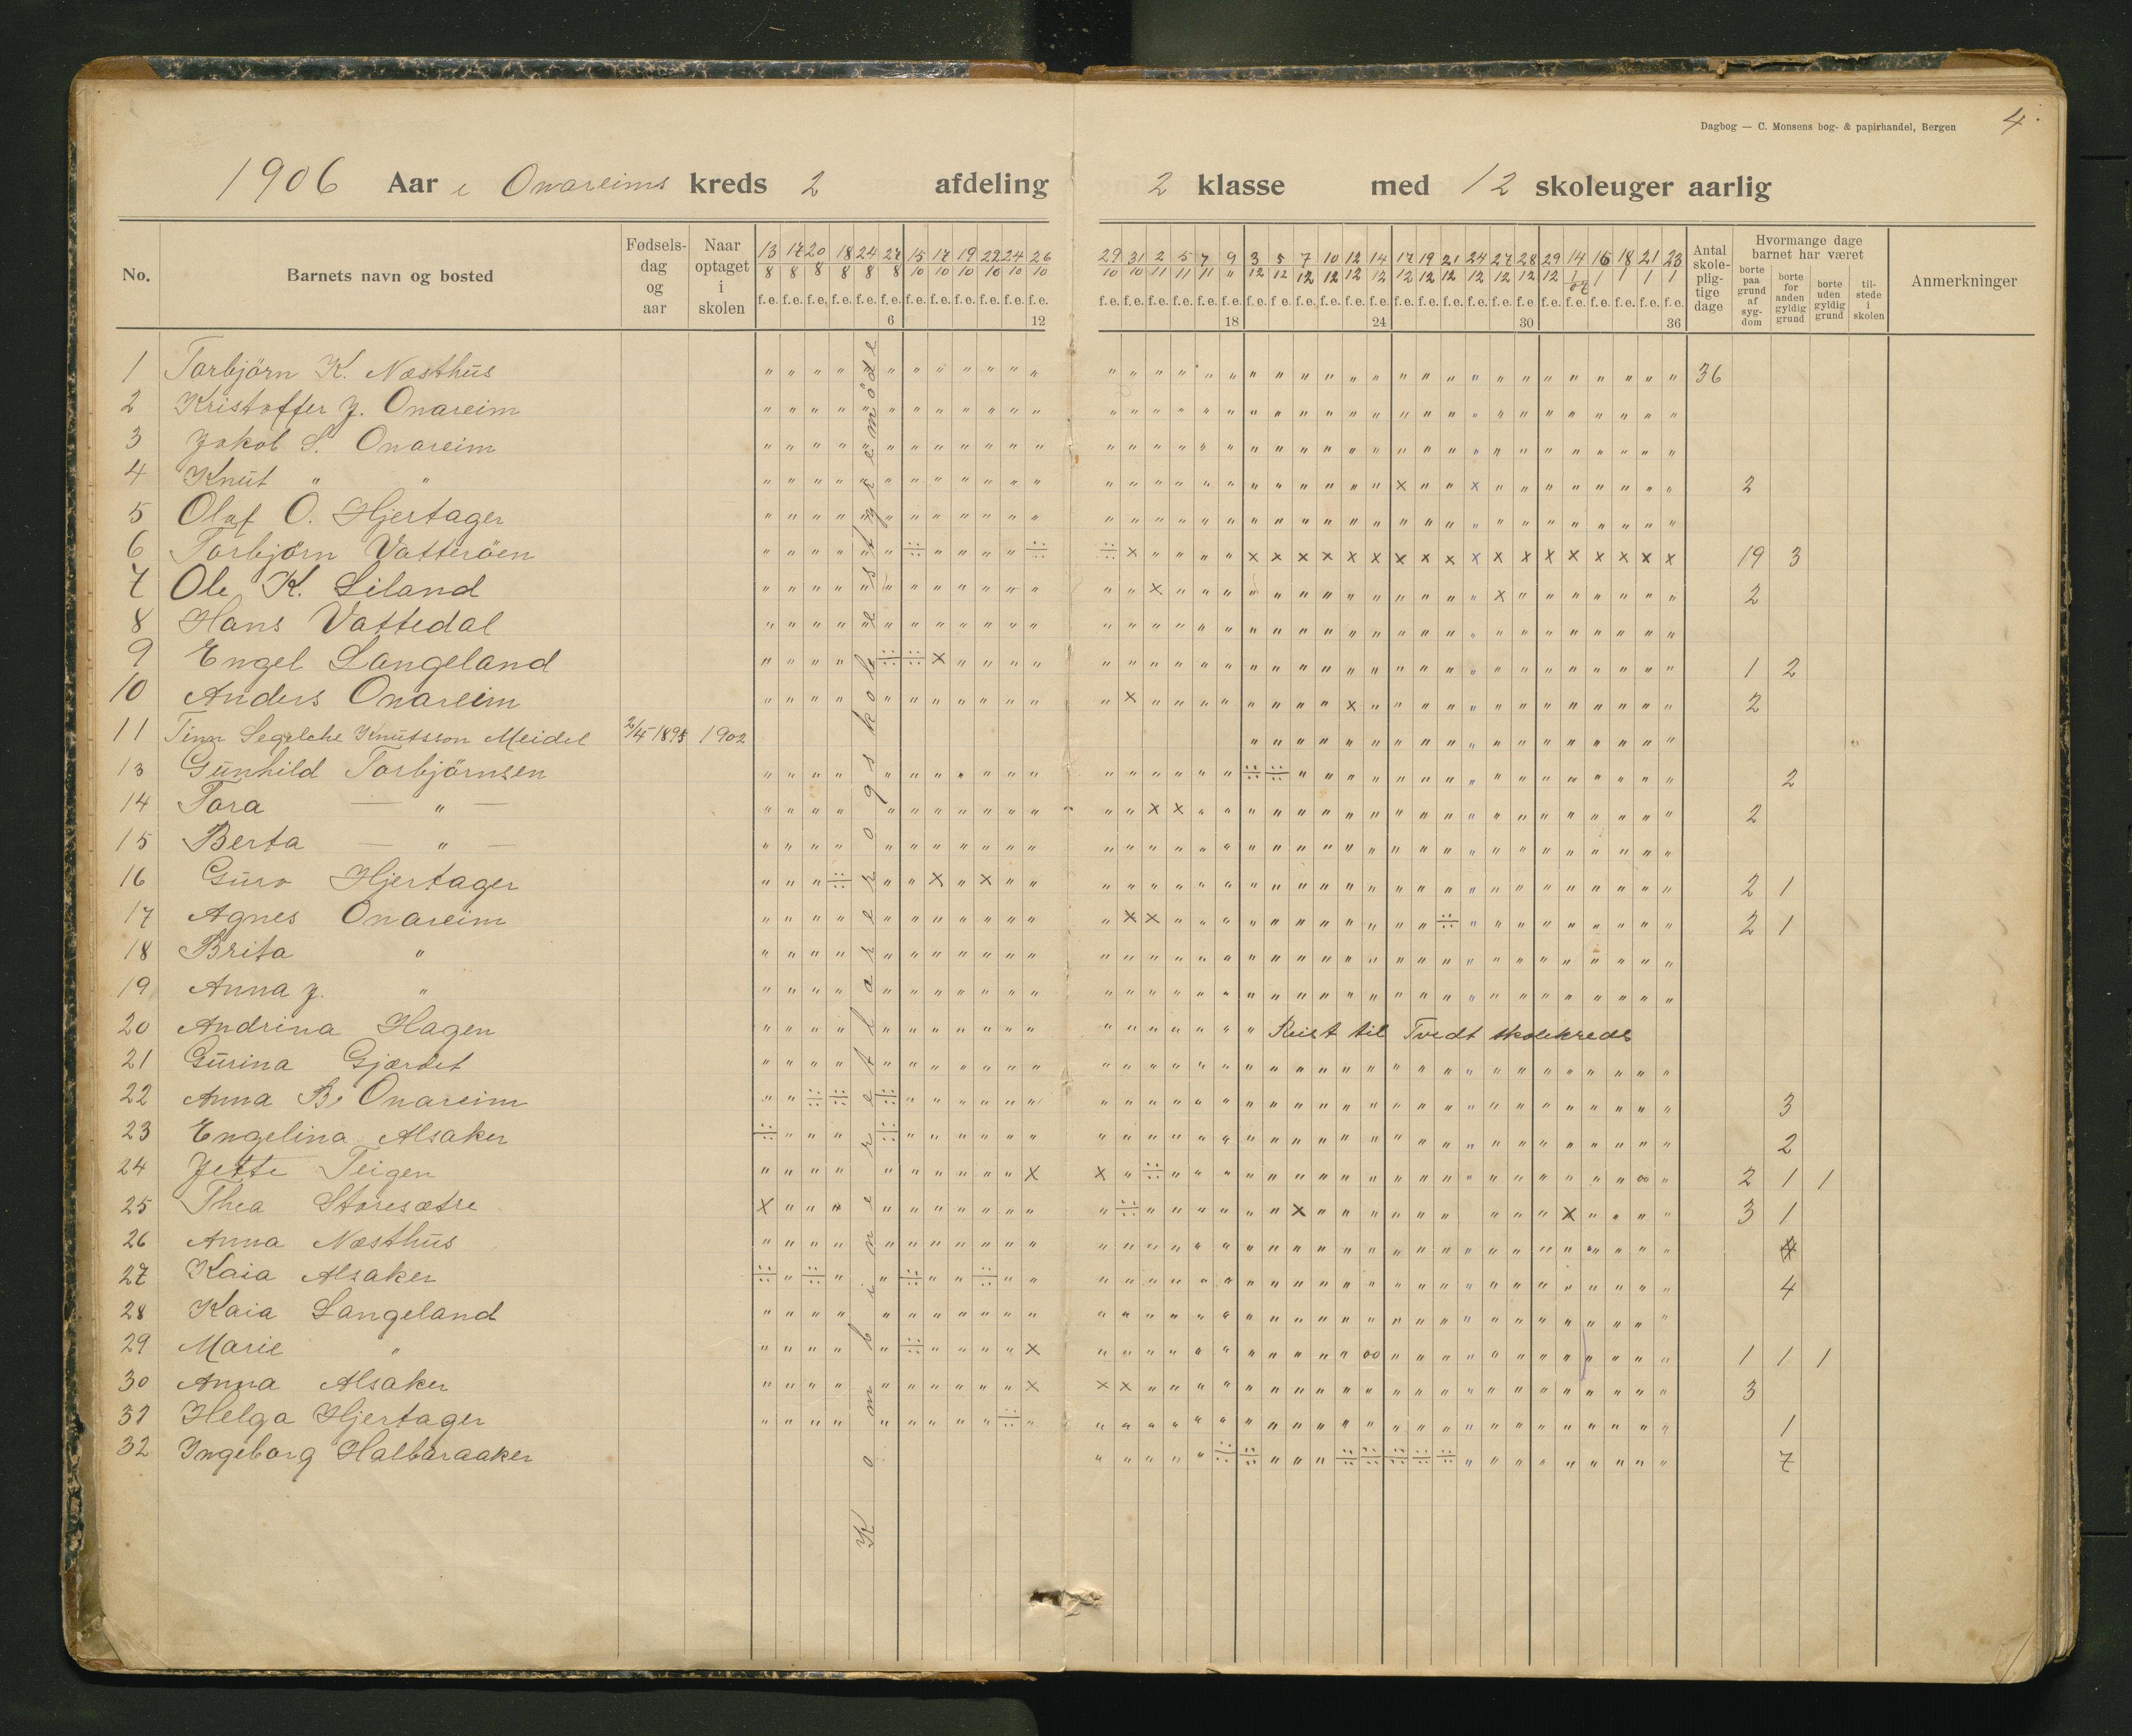 Dagbog — C. Monsens bog- & papirhandel, Bergen
4
1906 Aar i Onareims kreds 2 afdeling 2 klasse med 12 skoleuger aarlig
No. Barnets navn og bosted Fødsels-dag og aar Naar optaget i skolen
13/8 17/8 20/8 18/8 24/8 27/8 15/10 17/10 19/10 22/10 24/10 26/10
29/10 31/10 2/11 5/11 7/11 9/11 3/12 5/12 7/12 10/12 12/12 14/12 17/12 19/12 21/12 24/12 27/12 28/12 29/12 14/1 07 16/1 18/1 21/1 23/1
f. e. f. e. f. e. f. e. f. e. f. e. f. e. f. e. f. e. f. e. f. e. f. e.
f. e. f. e. f. e. f. e. f. e. f. e. f. e. f. e. f. e. f. e. f. e. f. e. f. e. f. e. f. e. f. e. f. e. f. e. f. e. f. e. f. e. f. e. f. e. f. e.
6 12 18 24 30 36
Antal skole-plig-tige dage
Hvormange dage barnet har været
borte paa grund af syg-dom
borte for anden gyldig grund
borte uden gyldig grund
til-stede i skolen
Anmerkninger
1 Torbjörn K. Næsthus 36
2 Kristoffer J. Onareim
3 Jakob S. Onareim
4 Knut " " 2
5 Oluf O. Hjertager
6 Torbjörn Vatteröen 19 3
7 Ole K. Liland 2
8 Hans Vattedal
9 Engel Langeland 1 2
10 Anders Onareim 2
11 Tina Knutsson Meidel 2/4 1895 1902
13 Gunhild Torbjörnsen 2
14 Tora — " — 2
15 Berta — " —
16 Guro Hjertager 2 1
17 Agnes Onareim 2 1
18 Brita "
19 Anna J. "
20 Andrina Hagen Reist til Tvedt skolekreds
21 Gurina Gjærdet
22 Anna B. Onareim 3
23 Engelina Alsaker 2
24 Jette Teigen 2 1 1
25 Thea Storesætre 3 1
26 Anna Næsthus
27 Kaia Alsaker 4
28 Kaia Langeland
29 Marie " 1 1 1
30 Anna Alsaker 3
31 Helga Hjertager 1
32 Ingeborg Halbaraaker 7
Kombineret lærer og skolestyremöde